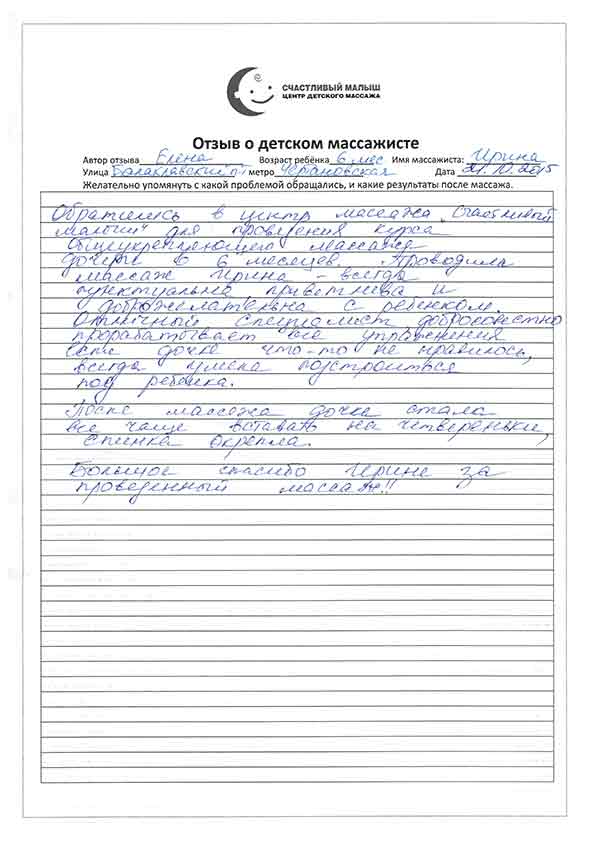 СЧАСТЛИВЫЙ МАЛЫШ
ЦЕНТР ДЕТСКОГО МАССАЖА
Отзыв о детском массажисте
Автор отзыва Елена Возраст ребёнка 6 мес Имя массажиста: Ирина
Улица Балаклавский п-т метро Чертановская Дата 21.10.2015
Желательно упомянуть с какой проблемой обращались, и какие результаты после массажа.
Обратились в центр массажа "Счастливый
малыш" для проведения курса
общеукрепляющего массажа
дочери в 6 месяцев. Проводила
массаж Ирина - всегда
пунктуальна приветлива и
доброжелательна с ребенком.
Отличный специалист добросовестно
прорабатывает все упражнения
Если дочке что-то не нравилось,
всегда умела подстроиться
под ребенка.
После массажа дочка стала
все чаще вставать на четвереньки,
спинка окрепла.
Большое спасибо Ирине за
проведенный массаж!!